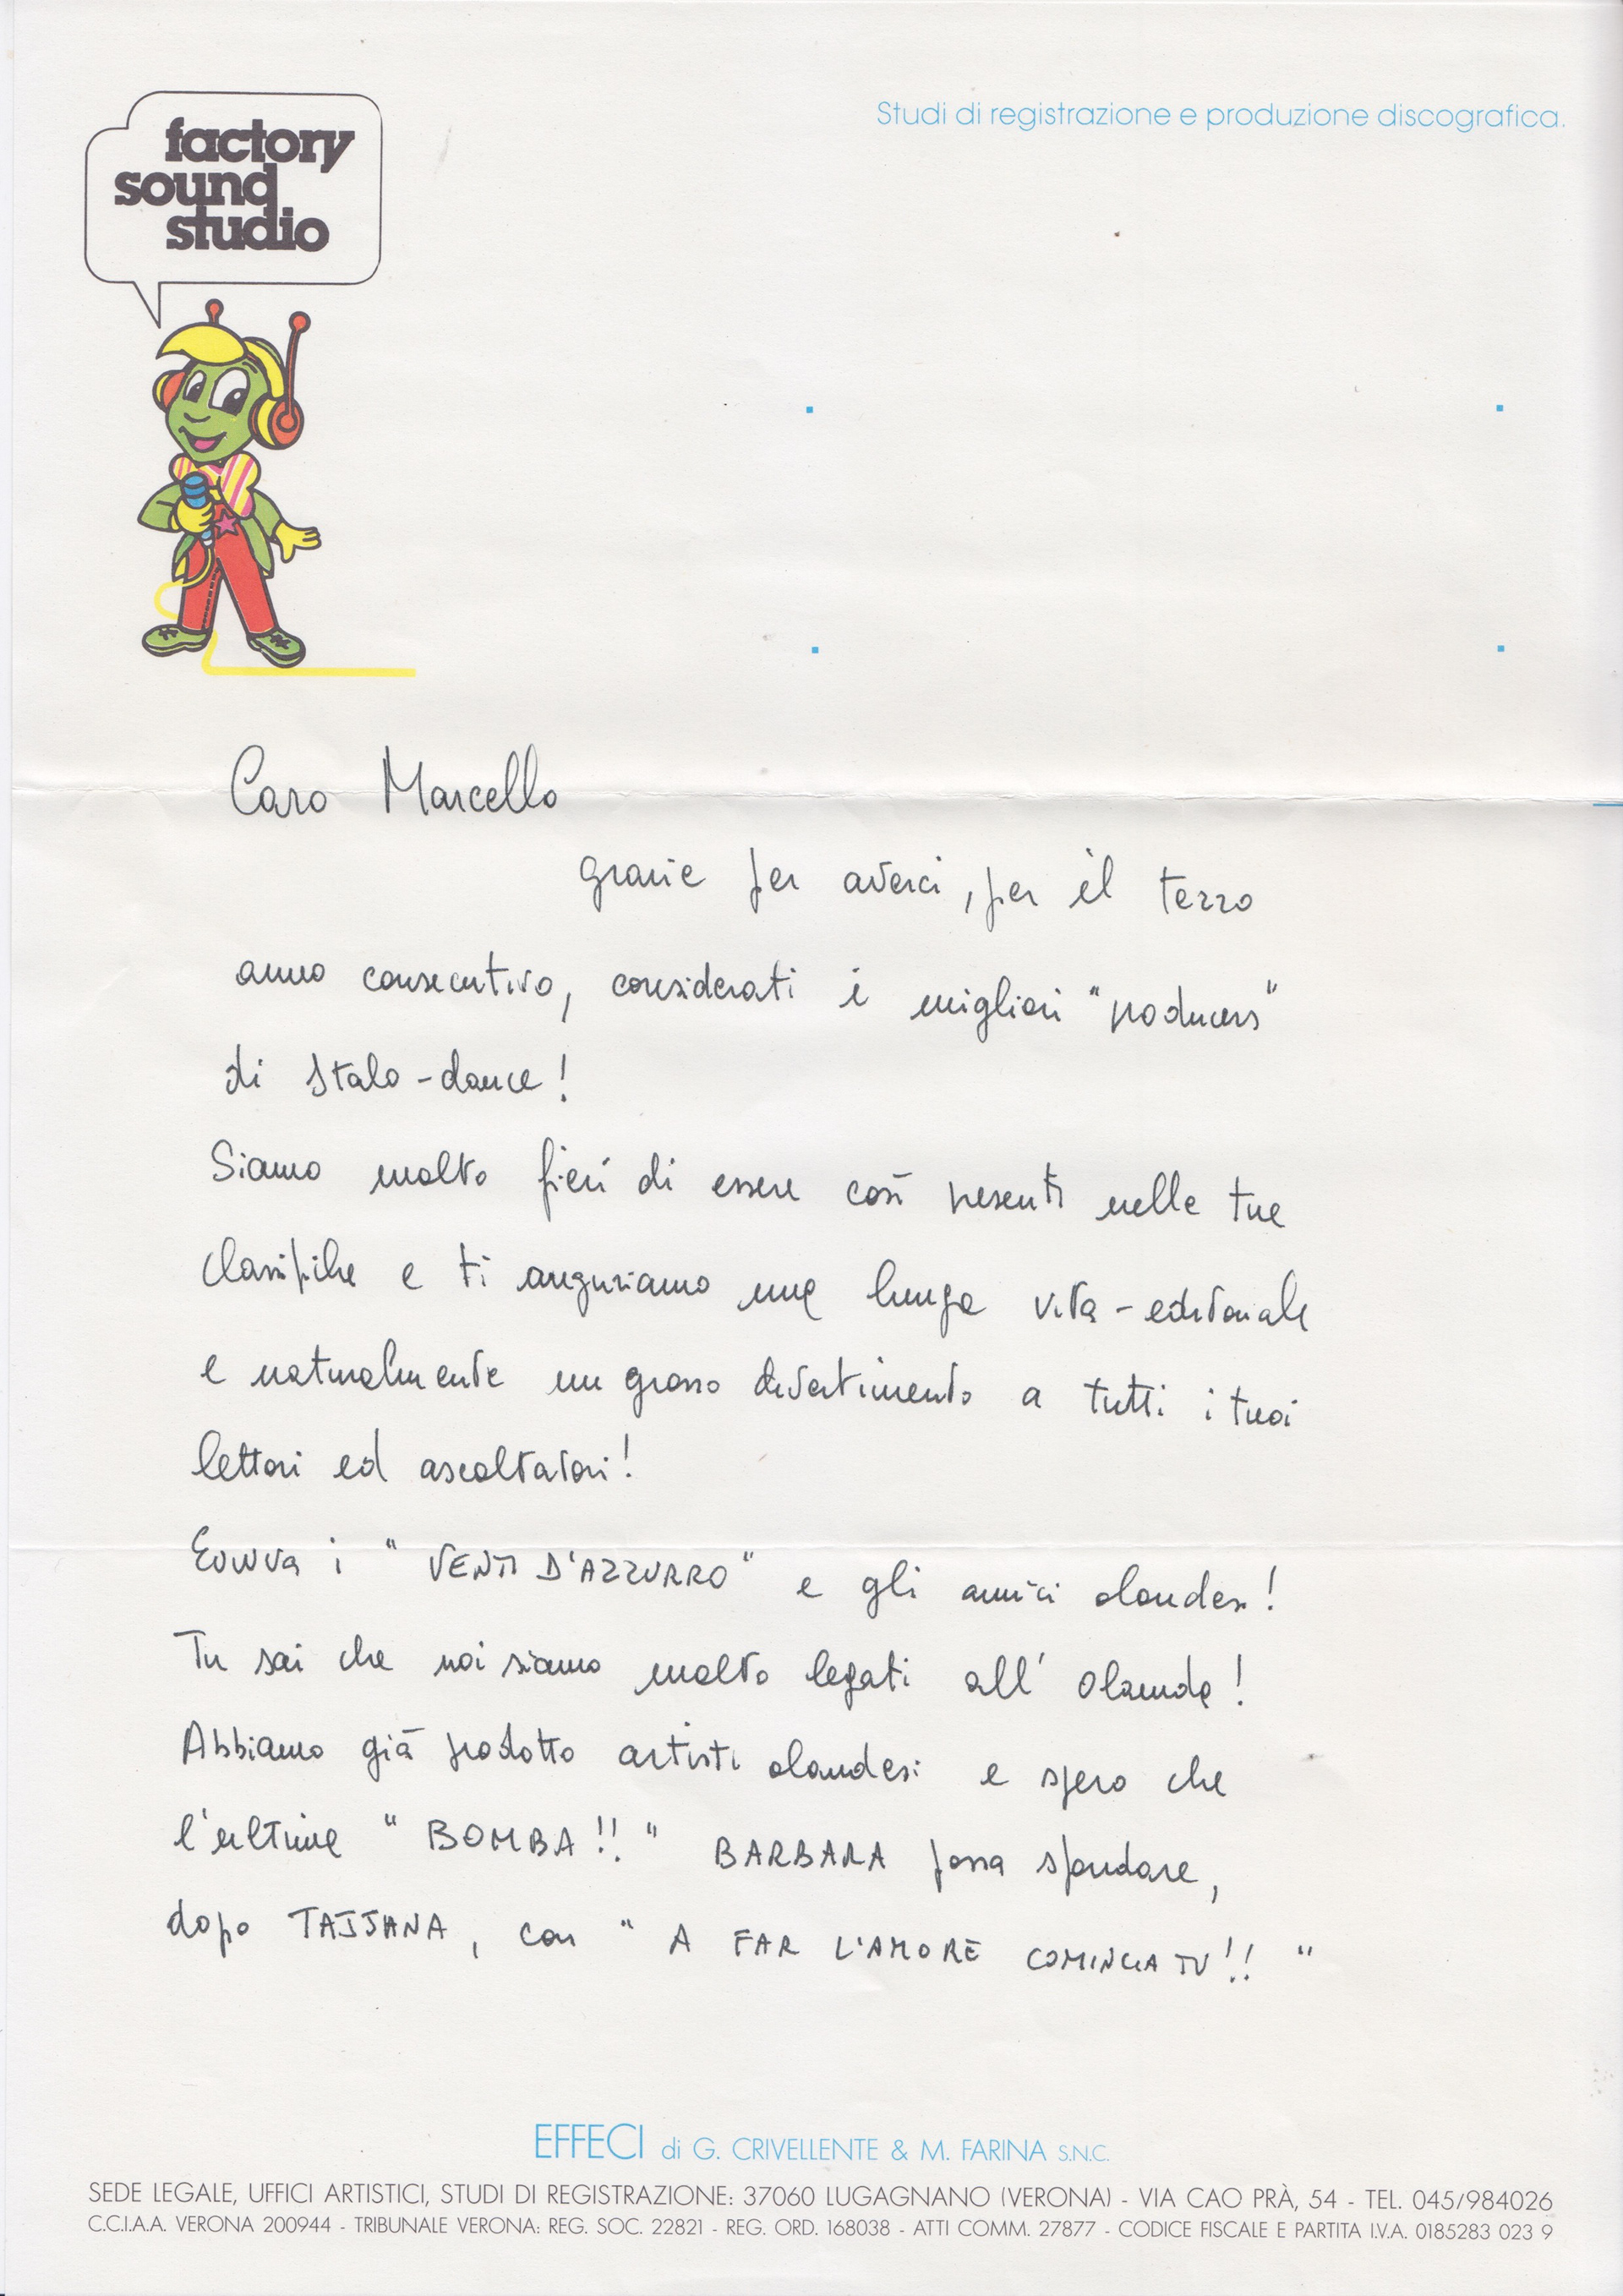 Studi di registrazione e produzione discografica.
factory
sound
studio
Caro Marcello
grazie per averci, per il terzo
anno consecutivo, considerati i migliori "producers"
di Italo-dance!
Siamo molto fieri di essere così presenti nelle tue
classifiche e ti auguriamo una lunga vita-editoriale
e naturalmente un grosso divertimento a tutti i tuoi
lettori ed ascoltatori!
Evviva i "VENTI D'AZZURRO" e gli amici olandesi!
Tu sai che noi siamo molto legati all'Olanda!
Abbiamo già prodotto artisti olandesi e spero che
l'ultima "BOMBA!!" BARBARA possa sfondare,
dopo TAJJANA, con "A FAR L'AMORE COMINCIA TU!!"
EFFECI di G. CRIVELLENTE & M. FARINA S.N.C.
SEDE LEGALE, UFFICI ARTISTICI, STUDI DI REGISTRAZIONE: 37060 LUGAGNANO (VERONA) - VIA CAO PRÀ, 54 - TEL. 045/984026
C.C.I.A.A. VERONA 200944 - TRIBUNALE VERONA: REG. SOC. 22821 - REG. ORD. 168038 - ATTI COMM. 27877 - CODICE FISCALE E PARTITA I.V.A. 0185283 023 9